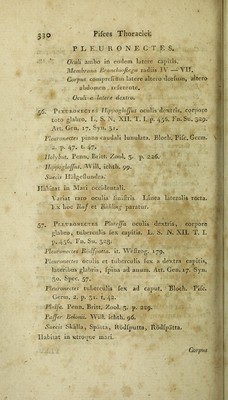 330 Pisces Thoracici
PLEURONECTES.
Oculi ambo in eodem latere capitis.
Membrana Branchiostega radiis IV — VII.
Corpus compressum latere altero dorsum, altero
abdomen referente.
Oculi a latere dextro.
36. PLEURONECTES Hippoglossus oculis dextris, corpore
toto glabro. L. S. N. XII. T. I. p. 456. Fn. Su. 329.
Art. Gen. 17. Syn. 31.
Pleuronectes pinna caudali lunulata. Bloch. Pisc. Germ.
2. p. 47. t. 47.
Holybut. Penn. Britt. Zool. 3. p. 226.
Hippoglossus. Will. ichth. 99.
Suecis Hälgeflundra.
Habitat in Mari occidentali.
Variat raro oculis sinistris. Linea lateralis recta.
Ex hoc Raf et Räkling paratur.
37. PLEURONECTES Platessa oculis dextris, corpore
glabro, tuberculis sex capitis. L. S. N. XII. T. I.
p. 456. Fn. Su. 328.
Pleuronectes Rödspotta. it. Wesgotg. 179.
Pleuronectes oculis et tuberculis sex a dextra capitis,
lateribus glabris, spina ad anum. Art. Gen. 17. Syn.
30. Spec. 57.
Pleuronectes tuberculis sex ad caput. Bloch. Pisc.
Germ. 2. p. 31. t. 42.
Plaise. Penn. Britt. Zool. 3. p. 229.
Passer Belonii. Will. ichth. 96.
Suecis Skålla, Spätta, Rödsputta, Rödspätta.
Habitat in utroque mari.
Corpus